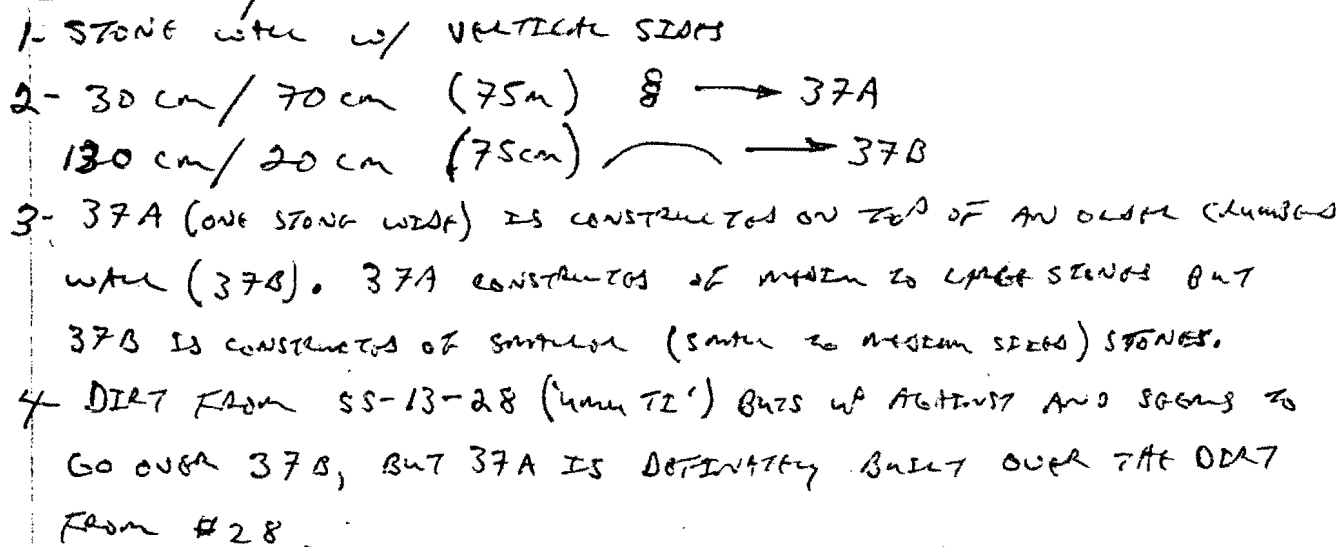 1- STONE WALL W/ VERTICAL SIDES
2- 30 cm/ 70 cm (75m) → 37A
130 cm/ 20 cm (75cm) → 37B
3- 37A (ONE STONE WIDE) IS CONSTRUCTED ON TOP OF AN OLDER CRUMBLED
WALL (37B). 37A CONSTRUCTED OF MEDIUM TO LARGE STONES BUT
37B IS CONSTRUCTED OF SMALLER (SMALL TO MEDIUM SIZED) STONES.
4- DIRT FROM SS-13-28 ('UMU TI') BUTS UP AGAINST AND SEEMS TO
GO OVER 37B, BUT 37A IS DEFINATELY BUILT OVER THE DIRT
FROM #28.